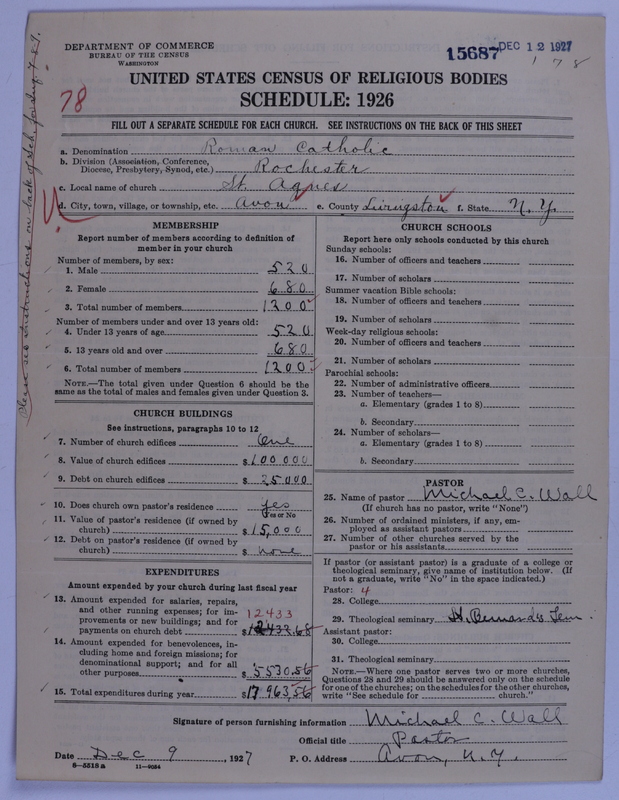 DEPARTMENT OF COMMERCE
BUREAU OF THE CENSUS
WASHINGTON
15687 DEC 12 1927
178
UNITED STATES CENSUS OF RELIGIOUS BODIES
SCHEDULE: 1926
78
FILL OUT A SEPARATE SCHEDULE FOR EACH CHURCH. SEE INSTRUCTIONS ON THE BACK OF THIS SHEET
a. Denomination Roman Catholic
b. Division (Association, Conference, Diocese, Presbytery, Synod, etc.) Rochester
c. Local name of church St. Agnes
d. City, town, village, or township, etc. Avon e. County Livingston f. State N.Y.
MEMBERSHIP
Report number of members according to definition of
member in your church
Number of members, by sex:
1. Male 520
2. Female 680
3. Total number of members 1200
Number of members under and over 13 years old:
4. Under 13 years of age 520
5. 13 years old and over 680
6. Total number of members 1200
NOTE.—The total given under Question 6 should be the
same as the total of males and females given under Question 3.
CHURCH BUILDINGS
See instructions, paragraphs 10 to 12
7. Number of church edifices One
8. Value of church edifices $100000
9. Debt on church edifices $25.000
10. Does church own pastor's residence yes
Yes or No
11. Value of pastor's residence (if owned by
church) $15,000
12. Debt on pastor's residence (if owned by
church) $none
EXPENDITURES
Amount expended by your church during last fiscal year
13. Amount expended for salaries, repairs,
and other running expenses; for im-
provements or new buildings; and for
payments on church debt 12433 $12432.68
14. Amount expended for benevolences, in-
cluding home and foreign missions; for
denominational support; and for all
other purposes $5530.56
15. Total expenditures during year $17963,56
CHURCH SCHOOLS
Report here only schools conducted by this church
Sunday schools:
16. Number of officers and teachers
17. Number of scholars
Summer vacation Bible schools:
18. Number of officers and teachers
19. Number of scholars
Week-day religious schools:
20. Number of officers and teachers
21. Number of scholars
Parochial schools:
22. Number of administrative officers
23. Number of teachers—
a. Elementary (grades 1 to 8)
b. Secondary
24. Number of scholars—
a. Elementary (grades 1 to 8)
b. Secondary
PASTOR
25. Name of pastor Michael C. Wall
(If church has no pastor, write "None")
26. Number of ordained ministers, if any, em-
ployed as assistant pastors
27. Number of other churches served by the
pastor or his assistants
If pastor (or assistant pastor) is a graduate of a college or
theological seminary, give name of institution below. (If
not a graduate, write "No" in the space indicated.)
Pastor: 4
28. College
29. Theological seminary St. Bernard's Sem.
Assistant pastor:
30. College
31. Theological seminary
NOTE.—Where one pastor serves two or more churches,
Questions 28 and 29 should be answered only on the schedule
for one of the churches; on the schedules for the other churches,
write "See schedule for church."
Signature of person furnishing information Michael C. Wall
Official title Pastor
Date Dec 9, 1927 P. O. Address Avon, N.Y.
8-5518a 11-9034